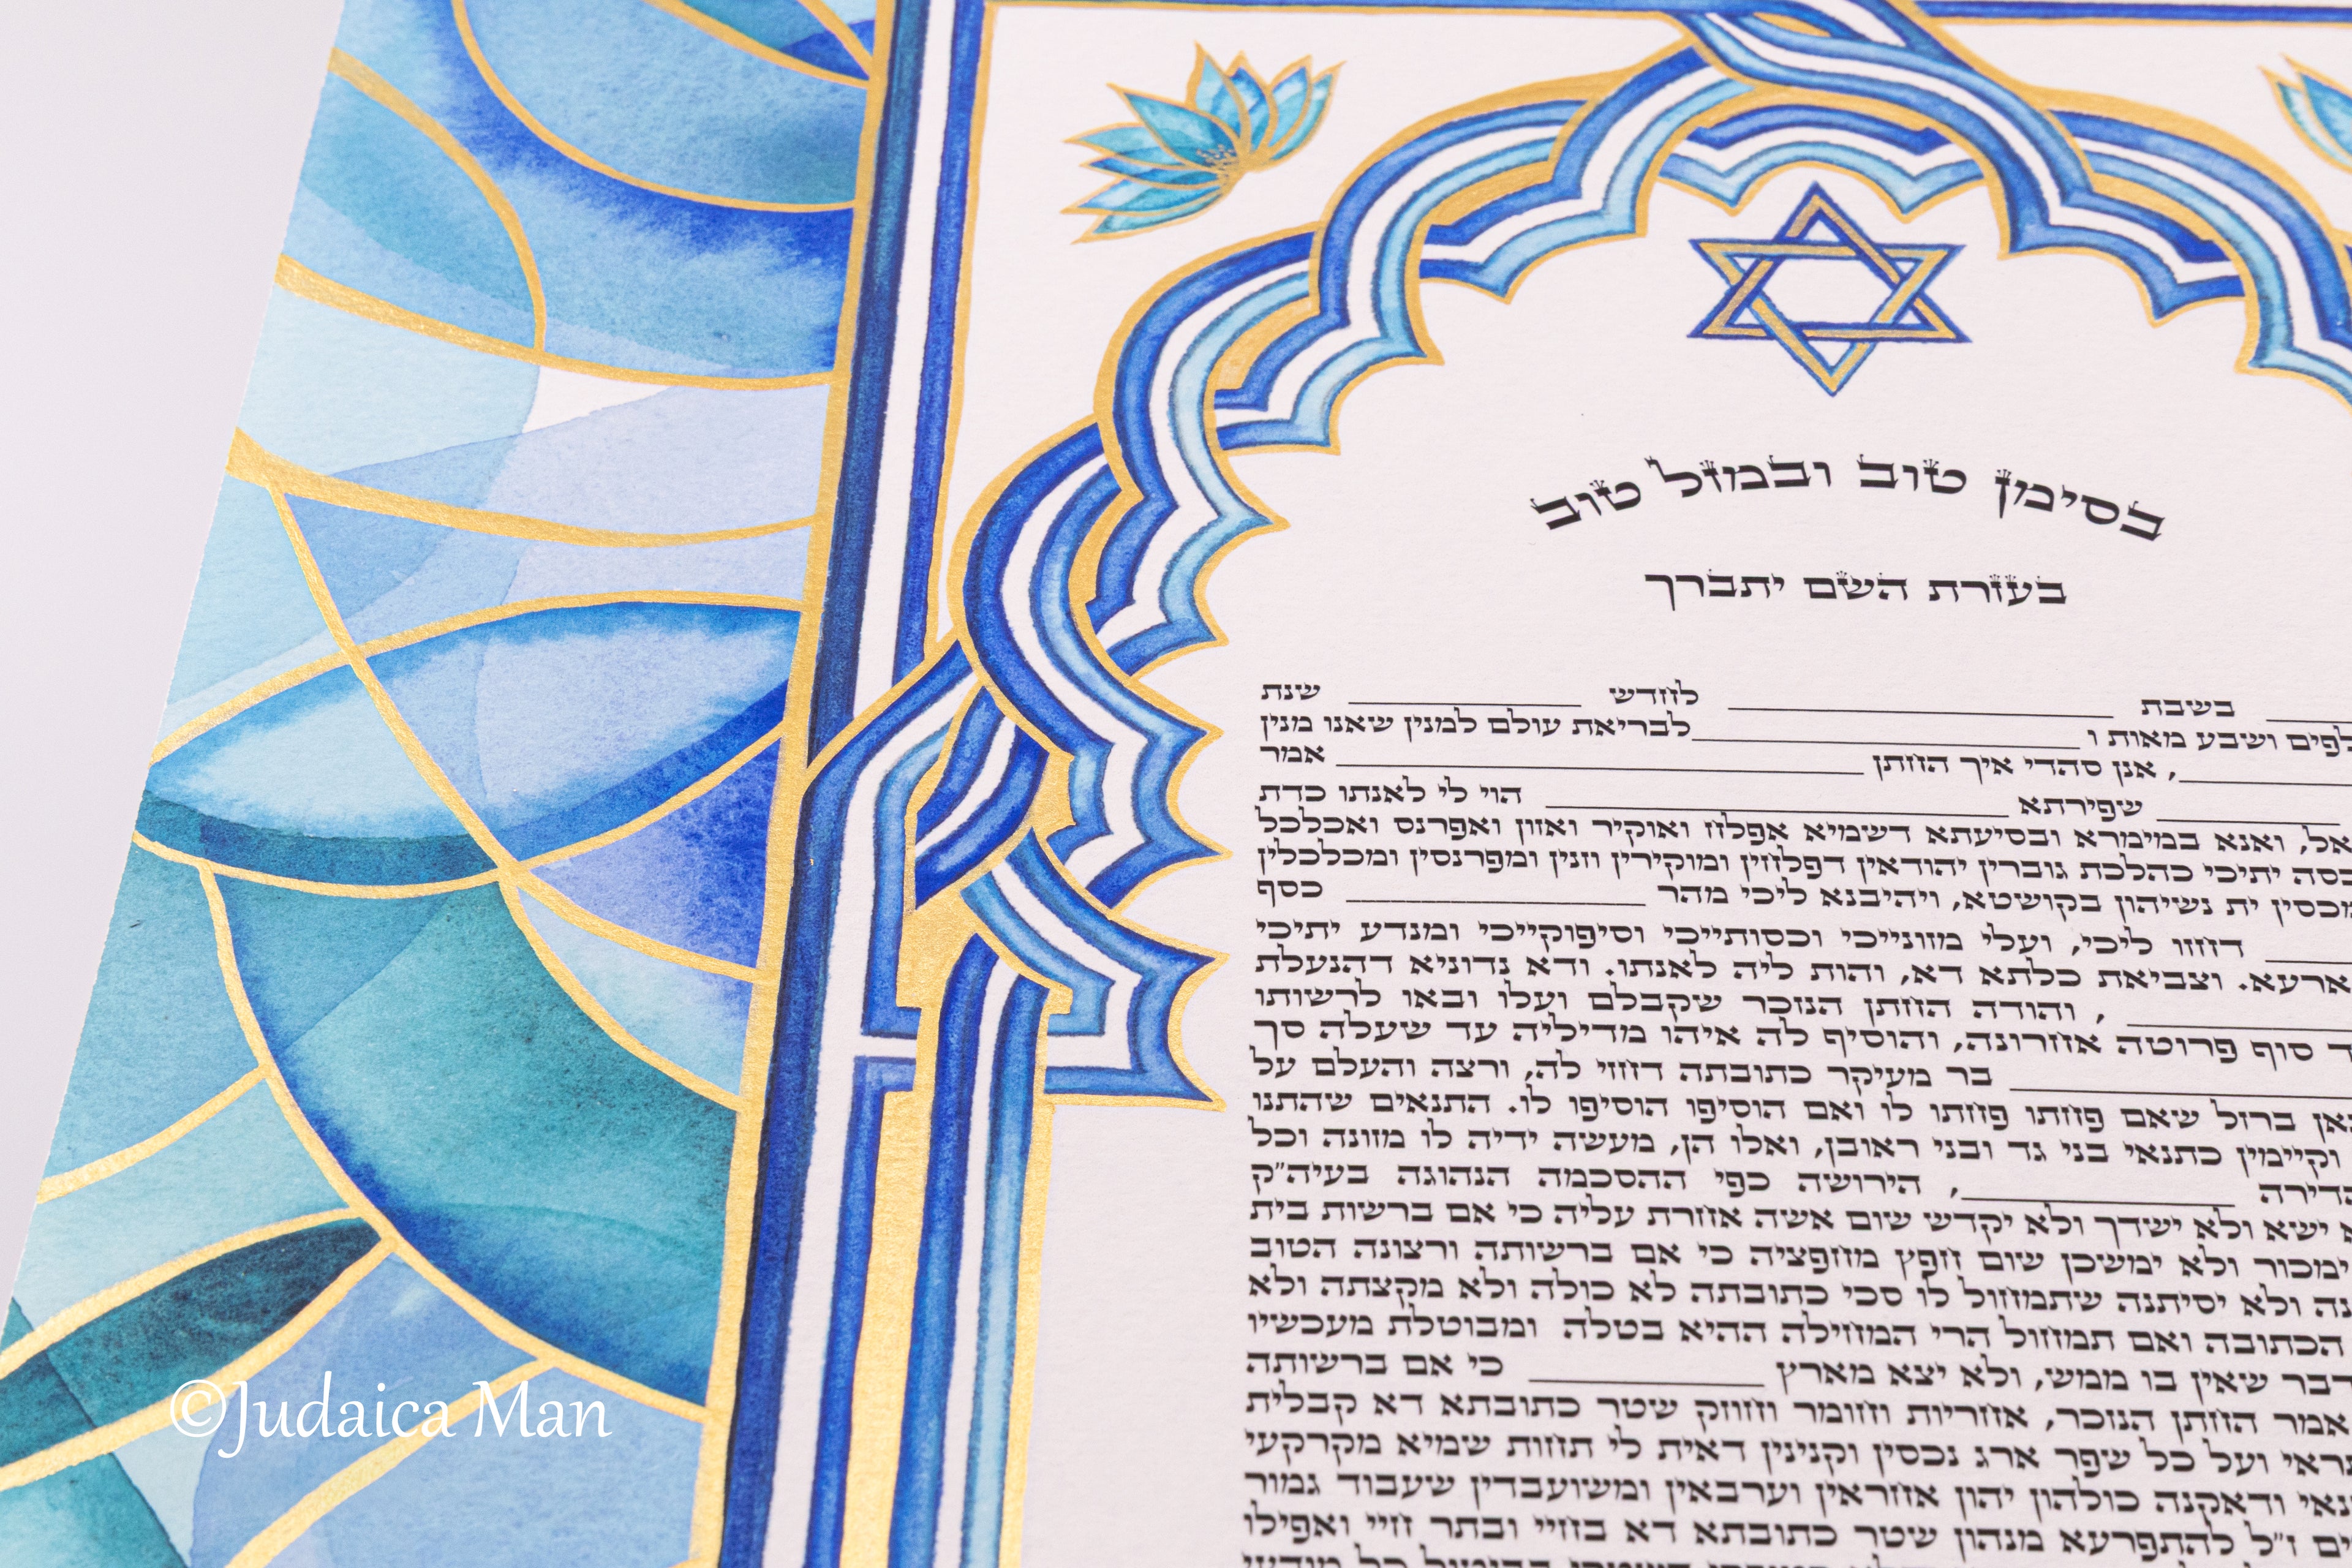 בסימן טוב ובמזל טוב
בעזרת השם יתברך
בשבת ____ לחדש ____ שנת
ושבע מאות ו____לבריאת עולם למנין שאנו מנין
____, אנן סהדי איך החתן ____ אמר
____ שפירתא ____ הוי לי לאנתו כדת
ואנא במימרא ובסיעתא דשמיא אפלח ואוקיר ואזון ואפרנס ואכלכל
יתיכי כהלכת גוברין יהודאין דפלחין ומוקירין וזנין ומפרנסין ומכלכלין
ומכסין ית נשיהון בקושטא, ויהיבנא ליכי מהר ____ כסף
____ דחזו ליכי, ועלי מזונייכי וכסותייכי וסיפוקייכי ומנדע יתיכי
ארעא. וצביאת כלתא דא, והות ליה לאנתו. ודא נדוניא דהנעלת
____ , והודה החתן הנזכר שקבלם ועלו ובאו לרשותו
סוף פרוטה אחרונה, והוסיף לה איהו מדיליה עד שעלה סך
____ בר מעיקר כתובתה דחזי לה, ורצה והעלם על
ברזל שאם פחתו פחתו לו ואם הוסיפו הוסיפו לו. התנאים שהתנו
וקיימין כתנאי בני גד ובני ראובן, ואלו הן, מעשה ידיה לו מזונה וכל
הדירה ____, הירושה כפי ההסכמה הנהוגה בעיה״ק
ישא ולא ישדך ולא יקדש שום אשה אחרת עליה כי אם ברשות בית
ימכור ולא ימשכן שום חפץ מחפציה כי אם ברשותה ורצונה הטוב
ולא יסיתנה שתמחול לו סכי כתובתה לא כולה ולא מקצתה ולא
הכתובה ואם תמחול הרי המחילה ההיא בטלה ומבוטלת מעכשיו
שאין בו ממש, ולא יצא מארץ ____ כי אם ברשותה
החתן הנזכר, אחריות וחומר וחוזק שטר כתובתא דא קבלית
ועל כל שפר ארג נכסין וקנינין דאית לי תחות שמיא מקרקעי
ודאקנה כולהון יהון אחראין וערבאין ומשועבדין שעבוד גמור
ז״ל להתפרעא מנהון שטר כתובתא דא בחיי ובתר חיי ואפילו
©Judaica Man